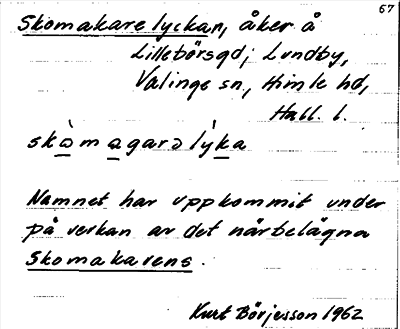 67
Skomakarelyckan, åker å
Lillebörsgd; Lundby,
Valinge sn, Himle hd,
Hall. l.
skò̱ma̱garəlýḵa
Namnet har uppkommit under
på verkan av det närbelägna
Skomakarens.
Kurt Börjesson 1962